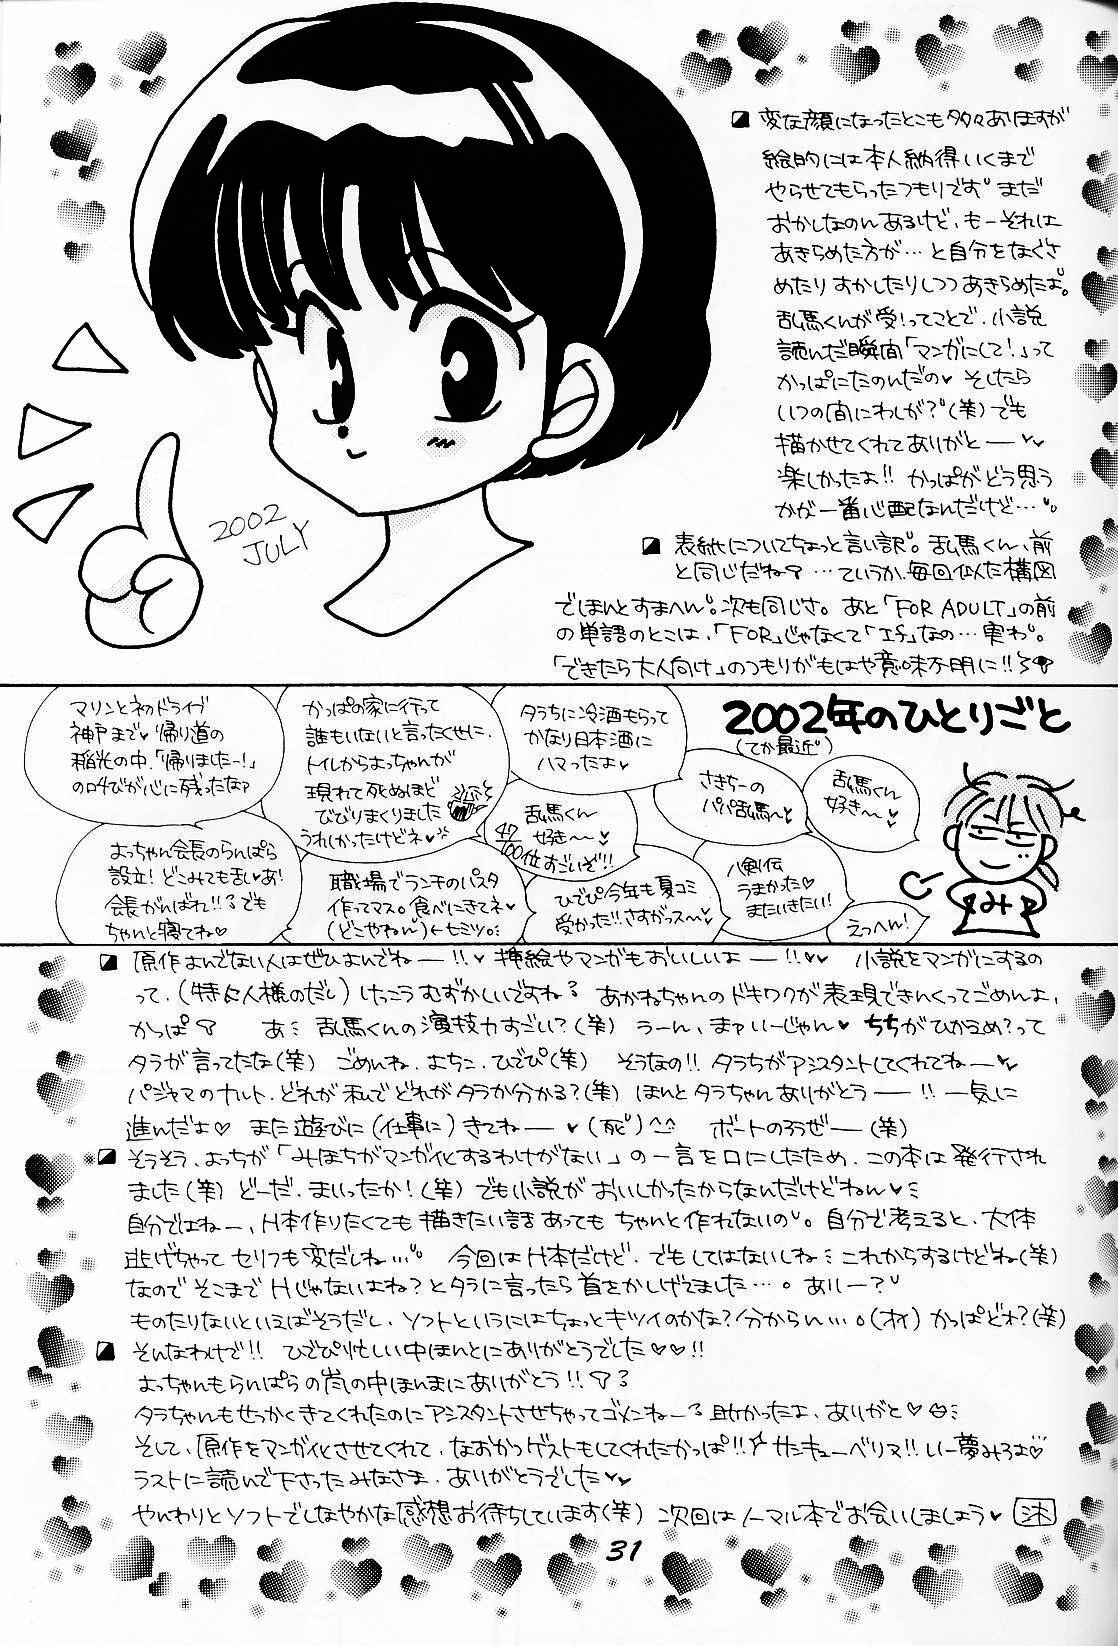 2002
JULY
◪ 変な顔になったとこも多々ありますが
絵的には本人納得いくまで
やらせてもらったつもりです。まだ
おかしなのんあるけど、もーそれは
あきらめた方が…と自分をなぐさ
めたり おかしたりしつつ あきらめたよ。
乱馬くんが受!ってことで、小説
読んだ瞬間「マンガにして!」って
かっぱにたのんだの♥ そしたら
いつの間にわしが?(笑)でも
描かせてくれてありがとー♥♥
楽しかったよ!! かっぱがどう思う
かが一番心配なんだけど…。
◪ 表紙についてちょっと言い訳。乱馬くん、前
と同じだね? …ていうか、毎回似た構図
でほんとすまへん。次も同じさ。あと「FOR ADULT」の前
の単語のとこは、「FOR」じゃなくて「If」なの…実わ。
「できたら大人向け」のつもりがもはや意味不明に!!
2002年のひとりごと
(てか最近)
乱馬くん
好き〜♥
さきちーの
パパ乱馬〜♥
タラちに冷酒もらって
かなり日本酒に
ハマったよ♥
かっぱの家に行って
誰もいないと言ったくせに、
トイレからよっちゃんが
現れて死ぬほど
びびりまくりました
うれしかったけどネ♥
マリンとネのドライブ
神戸まで♥ 帰り道の
稲光の中、「帰りましたー!」
の叫びが心に残ったなァ
よっちゃん会長のらんぱら
設立! どこみても乱♥あ!
会長がんばれ!! でも
ちゃんと寝てね♥
職場でランチのパスタ
作ってマス。食べにきてネ♥
(どこやねん)←ヒミツ。
乱馬くん
好き〜♥
47/100位すごいぞ!!
ひでぴ今年も夏コミ
受かった!! さすがっス〜♥
八剣伝
うまかった♥
またいきたい!
えっへん!
み
◪ 原作よんでない人はぜひよんでねー!!♥ 挿絵やマンガもおいしいよー!!♥♥ 小説をマンガにするの
って、(特に人様のだし) けっこうむずかしいですね? あかねちゃんのドキワクが表現できんくってごめんよ、
かっぱ あ 乱馬くんの演技力すごい?(笑) うーん、まァいーじゃん♥ ちちがひかえめ?って
タラが言ってたな(笑) ごめんね、よちこ、ひでぴ(笑) そうなの!! タラちがアシスタントしてくれてねー♥
パジャマのナルト、どれが私でどれがタラか分かる?(笑) ほんとタラちゃんありがとうー!! 一気に
進んだよ♡ また遊びに(仕事に)きてねー♥ (死) ^^ ボートのろうぜー(笑)
◪ そうそう、よっちが「みほちがマンガ化するわけがない」の一言を口にしたため、この本は発行され
ました(笑) どーだ、まいったか!(笑) でも小説がおいしかったからなんだけどねん♥
自分ではねー、H本作りたくても描きたい話あってもちゃんと作れないの。自分で考えると、大体
逃げちゃってセリフも変だしね…。 今回はH本だけど、でもしてはないしね これからするけどね(笑)
なのでそこまでHじゃないよね?とタラに言ったら首をかしげてました…。あれー?
ものたりないといえばそうだし、ソフトというにはちょっとキツイのかな?分からん…。(オイ) かっぱどォ?(笑)
◪ そんなわけで!! ひでぴ忙しい中ほんとにありがとうでした♡♡!!
よっちゃんもらんぱらの嵐の中ほんまにありがとう!!
タラちゃんもせっかくきてくれたのにアシスタントさせちゃってゴメンねー 助かったよ、ありがと♡
そして、原作をマンガ化させてくれて、なおかつゲストもしてくれたかっぱ!! サンキューベリマ!! いー夢みろよ♡
ラストに読んで下さったみなさま、ありがとうでした♥♥
やんわりとソフトでしなやかな感想お待ちしています(笑) 次回はノーマル本でお会いしましょう♥
31